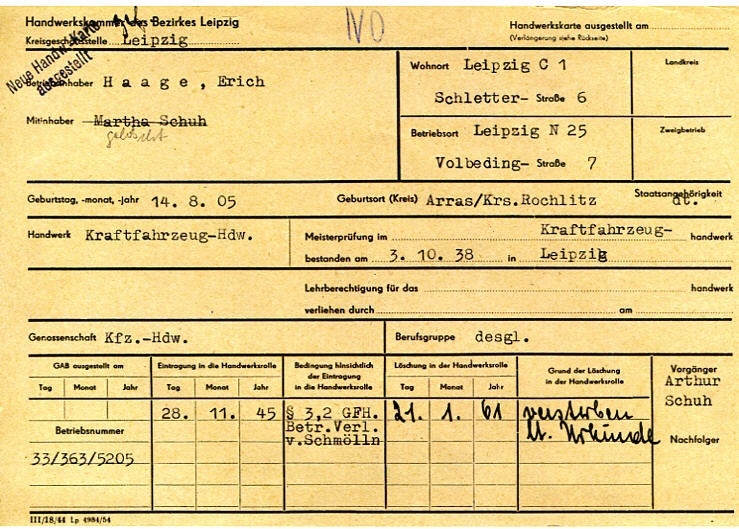 Handwerkskammer des Bezirkes Leipzig
NO
Handwerkskarte ausgestellt am
Kreisgeschäftsstelle Leipzig
(Verlängerung siehe Rückseite)
Neue Handw.-Karte
ausgestellt
Betriebsinhaber Haage, Erich
Mitinhaber Martha Schuh
gelöscht
Wohnort Leipzig C 1
Landkreis
Schletter- Straße 6
Betriebsort Leipzig N 25
Zweigbetrieb
Volbeding- Straße 7
Geburtstag, -monat, -jahr 14. 8. 05
Geburtsort (Kreis) Arras/Krs.Rochlitz
Staatsangehörigkeit
dt.
Handwerk Kraftfahrzeug-Hdw.
Meisterprüfung im Kraftfahrzeug- handwerk
bestanden am 3. 10. 38 in Leipzig
Lehrberechtigung für das handwerk
verliehen durch am
Genossenschaft Kfz.-Hdw.
Berufsgruppe desgl.
GAB ausgestellt am
Tag Monat Jahr
Betriebsnummer
33/363/5205
Eintragung in die Handwerksrolle
Tag Monat Jahr
28. 11. 45
Bedingung hinsichtlich
der Eintragung
in die Handwerksrolle
§ 3,2 GFH.
Betr.Verl.
v.Schmölln
Löschung in der Handwerksrolle
Tag Monat Jahr
21. 1. 61
Grund der Löschung
in der Handwerksrolle
verstorben
lt. Urkunde
Vorgänger
Arthur
Schuh
Nachfolger
III/18/44 Lp 4984/54